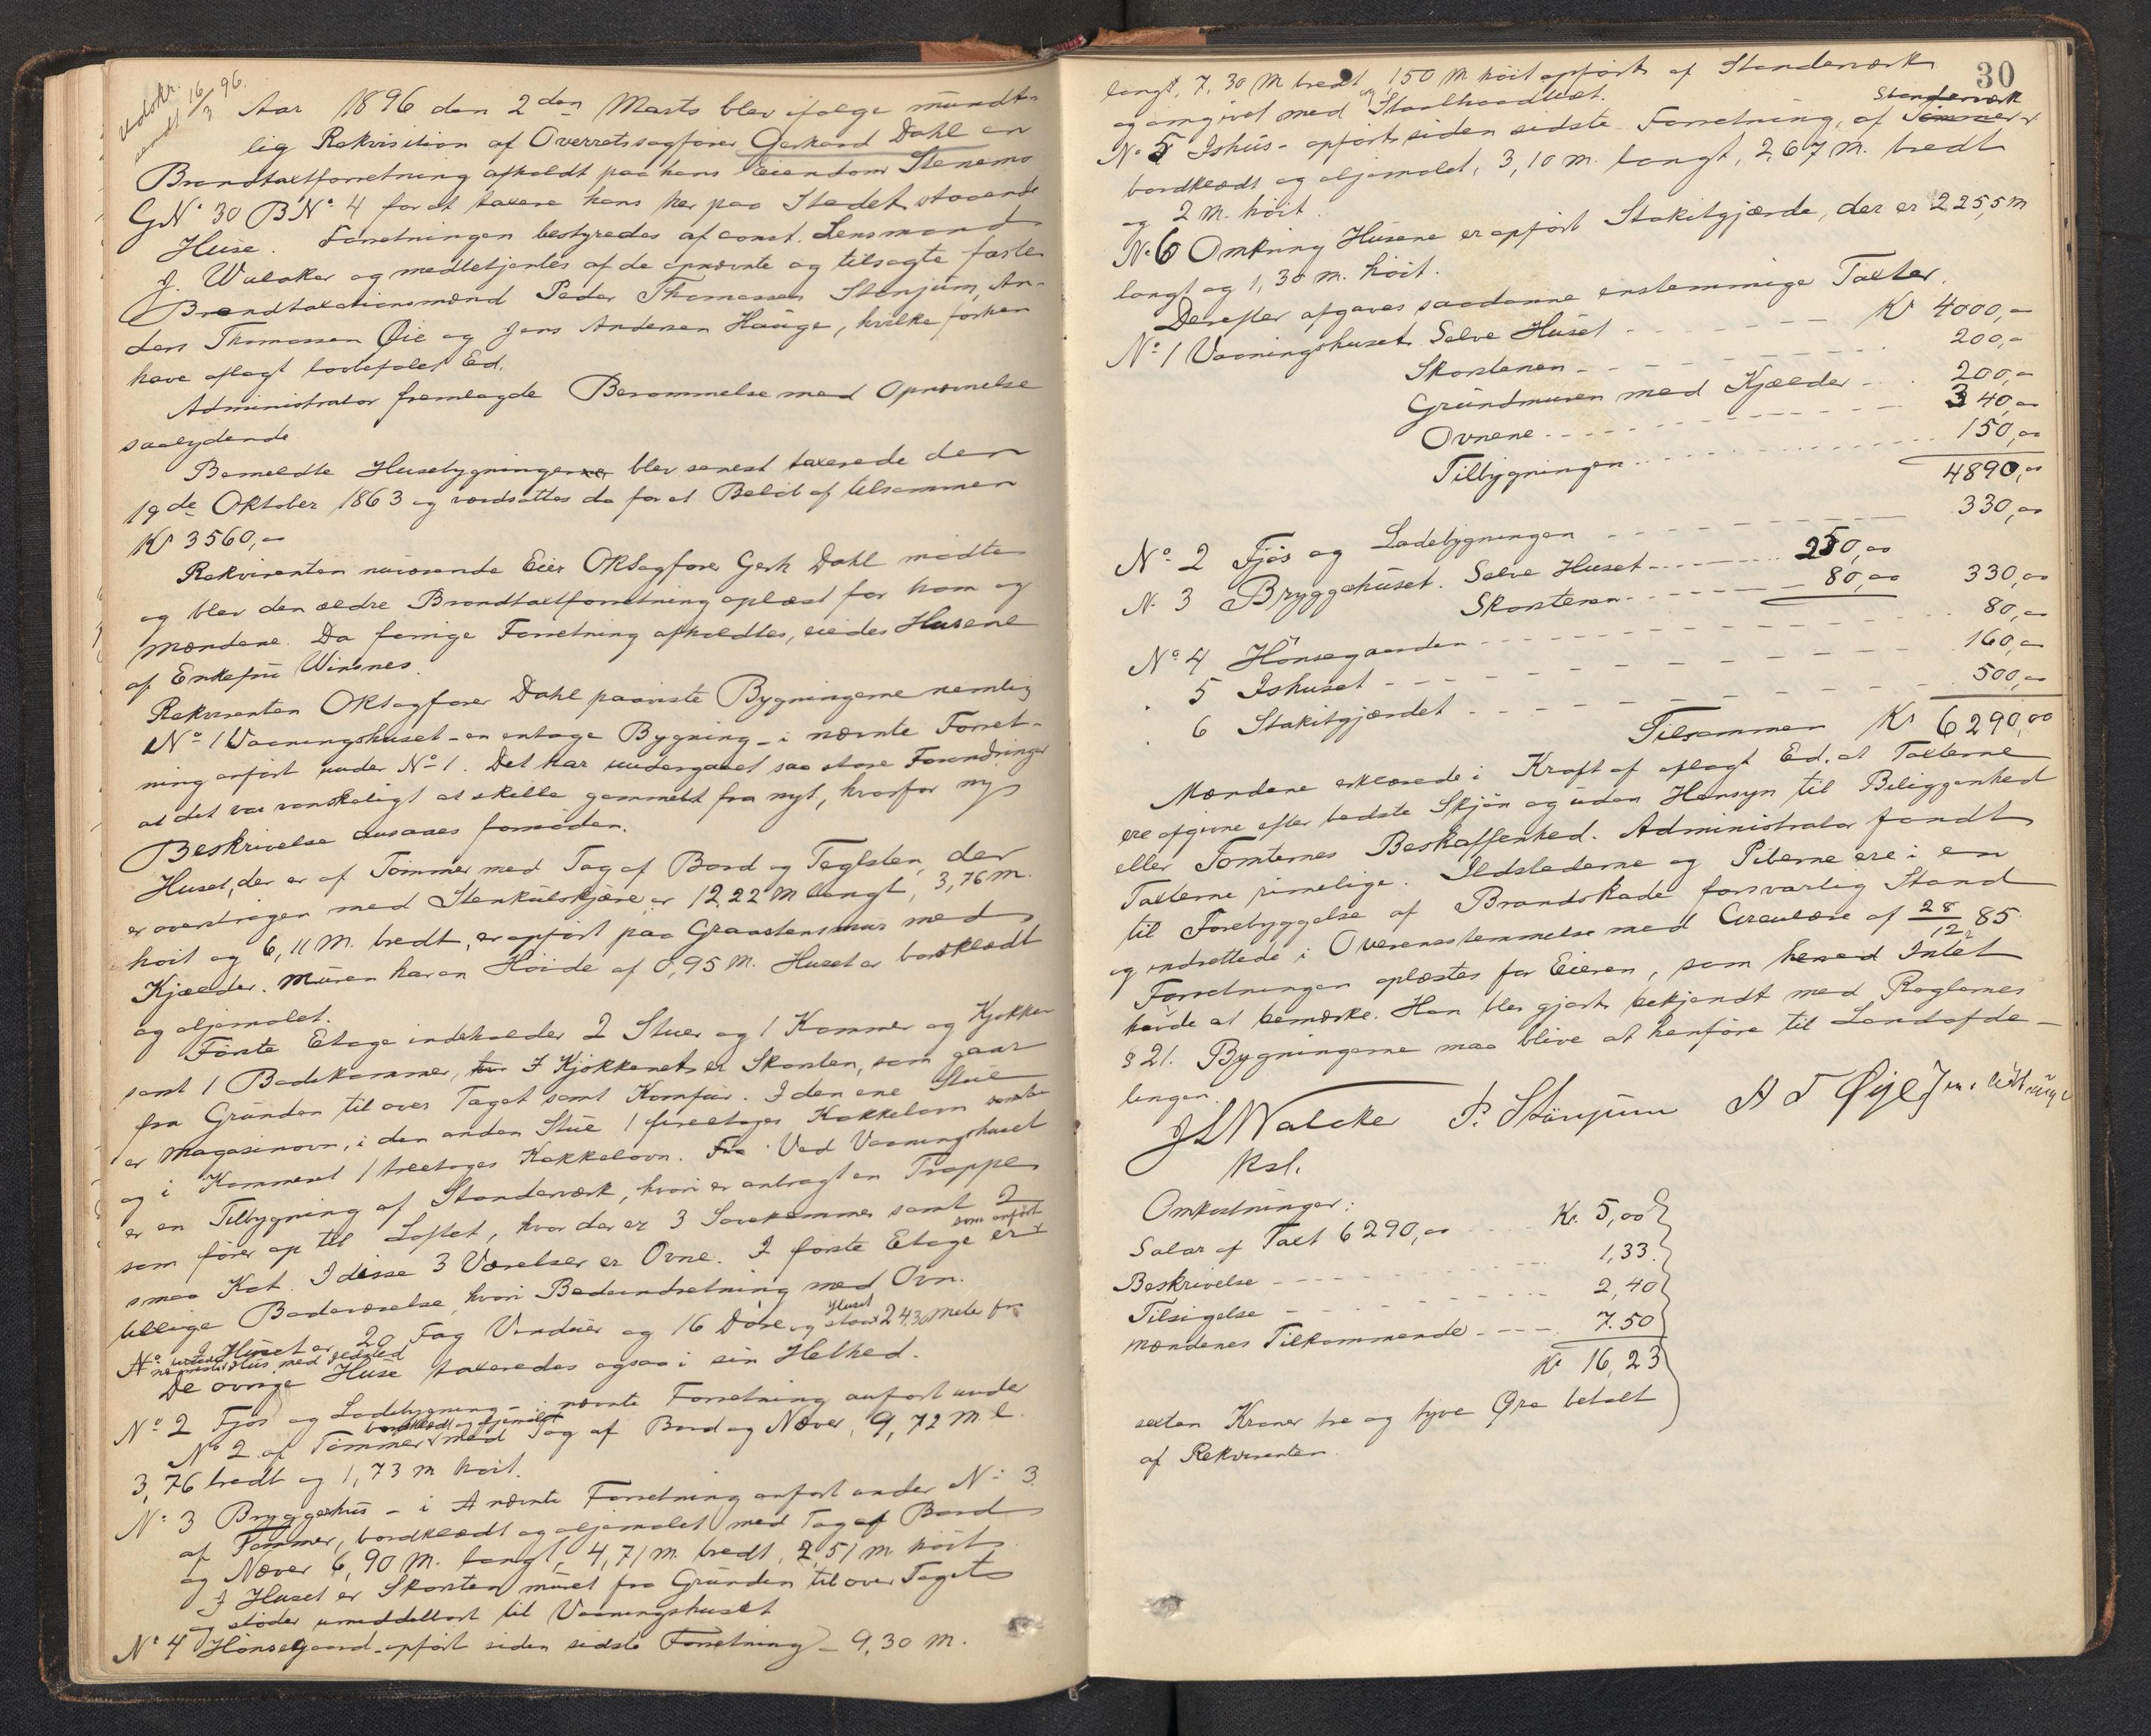 Udskr.
sendt 16/3 96.
Aar 1896 den 2den Marts blev ifølge mundt-
lig Rekvisition af Overretssagfører Gerhard Dahl en
Brandtaxtforretning afholdt paa hans Eiendom Stenemo
GNo 30 BNo 4 for at taxere hans her paa Stedet staaende
Huse. Forretningen bestyredes af const. Lensmand
J. Walaker og medbetjentes af de opnævnte og tilsagte faste
Brandtaxationsmænd Peder Thomassen Stenjum, An-
ders Thomassen Øie og Jens Andersen Hauge, hvilke forhen
have aflagt lovbefalet Ed.
Administrator fremlagde Berammelse med Opnævnelse
saalydende
Bemeldte Husebygninger blev senest taxerede den
19de Oktober 1863 og værdsattes da for et Beløb af tilsammen
Kr 3560,00
Rekvirenten nuværende Eier ORSagfører Gerh Dahl mødte
og blev den ældre Brandtaxtforretning oplæst for ham og
Mændene. Da forrige Forretning afholdtes, eiedes Husene
af Enkefru Winsnes.
Rekvirenten ORSagfører Dahl paaviste Bygningerne nemlig
No 1 Vaaningshuset - en etage Bygning - i nævnte Forret-
ning anført under No 1. Det har undergaaet saa store Forandringer
at det var vanskeligt at skille gammelt fra nyt, hvorfor ny
Beskrivelse ansaaes fornøden.
Huset, der er af Tømmer med Tag af Bord og Teglsten, der
er overstrøgen med Stenkulstjære, er 12,22 M langt, 3,76 M.
høit og 6,11 M. bredt, er opført paa Graastensmur med
Kjælder. Muren har en Høide af 0,95 M. Huset er bordklædt
og oljemalet.
Første Etage indeholder 2 Stuer og 1 Kammer og Kjøkken
samt 1 Badekammer, I Kjøkkenet er Skorsten, som gaar
fra Grunden til over Taget samt Komfur. I den ene Stue
er Magasinovn, i den anden Stue 1 fireetages Kakkelovn samt
og i Kammeret 1 treetages Kakkelovn. Fra Ved Vaaningshuset
er en Tilbygning af Standerværk, hvori er anbragt en Trappe
som fører op til Loftet, hvor der er 3 Sovekammer samt 2
smaa Kot. I disse 3 Værelser er Ovne. I første Etage er som anført
tillige Badeværelse, hvori Badeindretning med Ovn.
I Huset er 20 Fag Vinduer og 16 Døre og Huset staar 24,30 Meter fra
nærmeste Hus med Ildsted
De øvrige Huse taxeredes ogsaa i sin Helhed.
No 2 Fjøs og Ladebygning - i nævnte Forretning anført under
No 2 af Tømmer bordklædt og oljemalet med Tag af Bord og Næver, 9,72 M. l.
3,76 bredt og 1,73 M høit.
No 3 Bryggerhus - i nævnte Forretning anført under No 3
af Tømmer, bordklædt og oljemalet med Tag af Bord
og Næver 6,90 M. langt, 4,71 M. bredt, 2,51 M høit
I Huset er Skorsten muret fra Grunden til over Taget
og støder umiddelbart til Vaaningshuset
No 4 Hønsegaard - opført siden sidste Forretning - 9,30 M.
30
langt, 7,30 M bredt og 1,50 M høit opført af Standerværk
og omgivet med Staaltraadnet.
No 5 Ishus - opført siden sidste Forretning, af Tømmer Standerværk
bordklædt og oljemalet, 3,10 m. langt, 2,67 M. bredt
og 2 M. høit.
No 6 Omkring Husene er opført Stakitgjærde, der er 225,5 M
langt og 1,30 m. høit.
Derefter afgaves saadanne enstemmige Taxter.
No 1 Vaaningshuset Selve Huset - - - Kr 4000,00
Skorstenen - - - 200,00
Grundmuren med Kjælder - - 200,00
Ovnene - - - 340,00
Tilbygningen - - - 150,00
4890,00
No 2 Fjøs og Ladebygningen - - - 330,00
No 3 Bryggehuset. Selve Huset - - - 250,00
Skorstenen - - - 80,00 330,00
No 4 Hønsegaarden - - - 80,00
" 5 Ishuset - - - 160,00
" 6 Stakitgjærdet - - - 500,00
Tilsammen Kr 6290,00
Mændene erklærede i Kraft af aflagt Ed, at Taxterne
ere afgivne efter bedste Skjøn og uden Hensyn til Beliggenhed
eller Tomternes Beskaffenhed. Administrator fandt
Taxterne rimelige. Ildstederne og Piberne ere i en
til Forebyggelse af Brandskade forsvarlig Stand
og indrettede i Overensstemmelse med Circulære af 28/12 85.
Forretningen oplæstes for Eieren, som herved Intet
havde at bemærke. Han blev gjort bekjendt med Reglernes
§ 21. Bygningerne maa blive at henføre til Landafde-
lingen.
J L Walaker P. Stønjum A T Øye Jens Hauge
kst.
Omkostninger:
Salær af Taxt 6290,00 - - Kr. 5,00
Beskrivelse - - - 1,33
Tilsigelse - - - 2,40
Mændenes Tilkommende - - - 7.50
Kr 16,23
sexten Kroner tre og tyve Øre betalt
af Rekvirenten